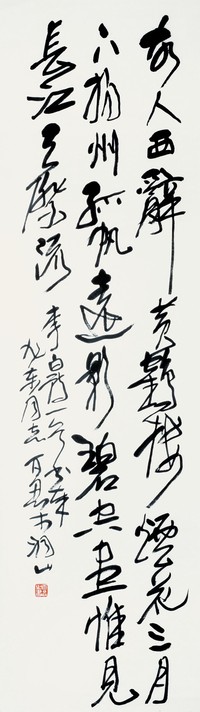 故人西辭黃鶴樓煙花三月
下揚州孤帆遠影碧空盡惟見
長江天際流
李白詩一首书奉
東同志